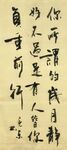 你所謂的歲月靜
好不過是有人替你
負重前行